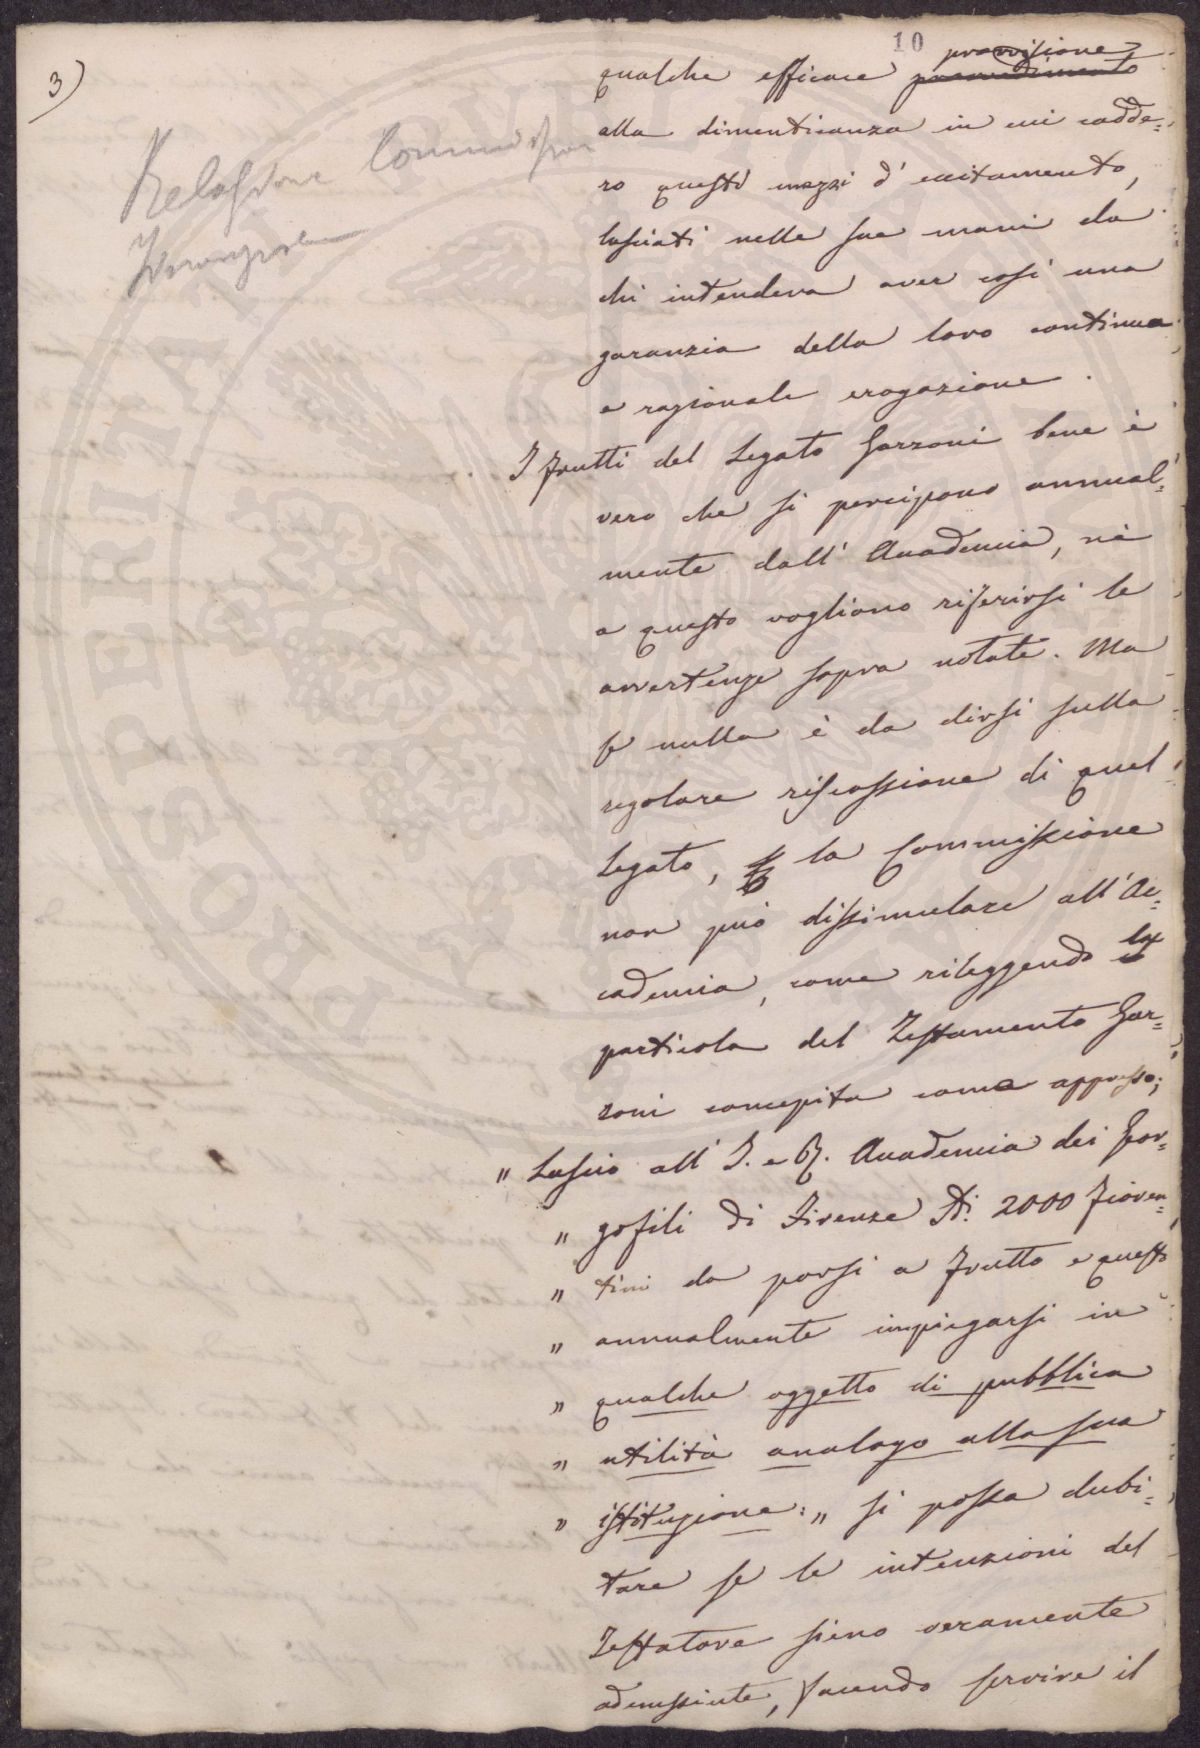 3)
10
Relazione Commissione
provvisione
qualche efficace provvedimento
alla dimenticanza in cui cadde=
ro questi mezzi d'eccitamento,
lasciati nelle sue mani da
chi intendeva aver così una
garanzia della loro continua
e razionale erogazione.
I frutti del Legato Garzoni bene è
vero che si percipono annual=
mente dall'Accademia, nè
a questo vogliono riferirsi le
avvertenze sopra notate. Ma
se nulla è da dirsi sulla
regolare riscossione di quel
Legato, la Commissione
non può dissimulare all'Ac=
cademia, come rileggendo la
particola del Testamento Gar=
zoni concepita come appresso;
" Lascio all'I. e R. Accademia dei Geor=
" gofili di Firenze 2000 fioren=
" tini da porsi a frutto e questo
" annualmente impiegarsi in
" qualche oggetto di pubblica
" utilità analogo alla sua
" istituzione: " si possa dubi=
tare se le intenzioni del
Testatore sieno veramente
adempiute, facendo servire il